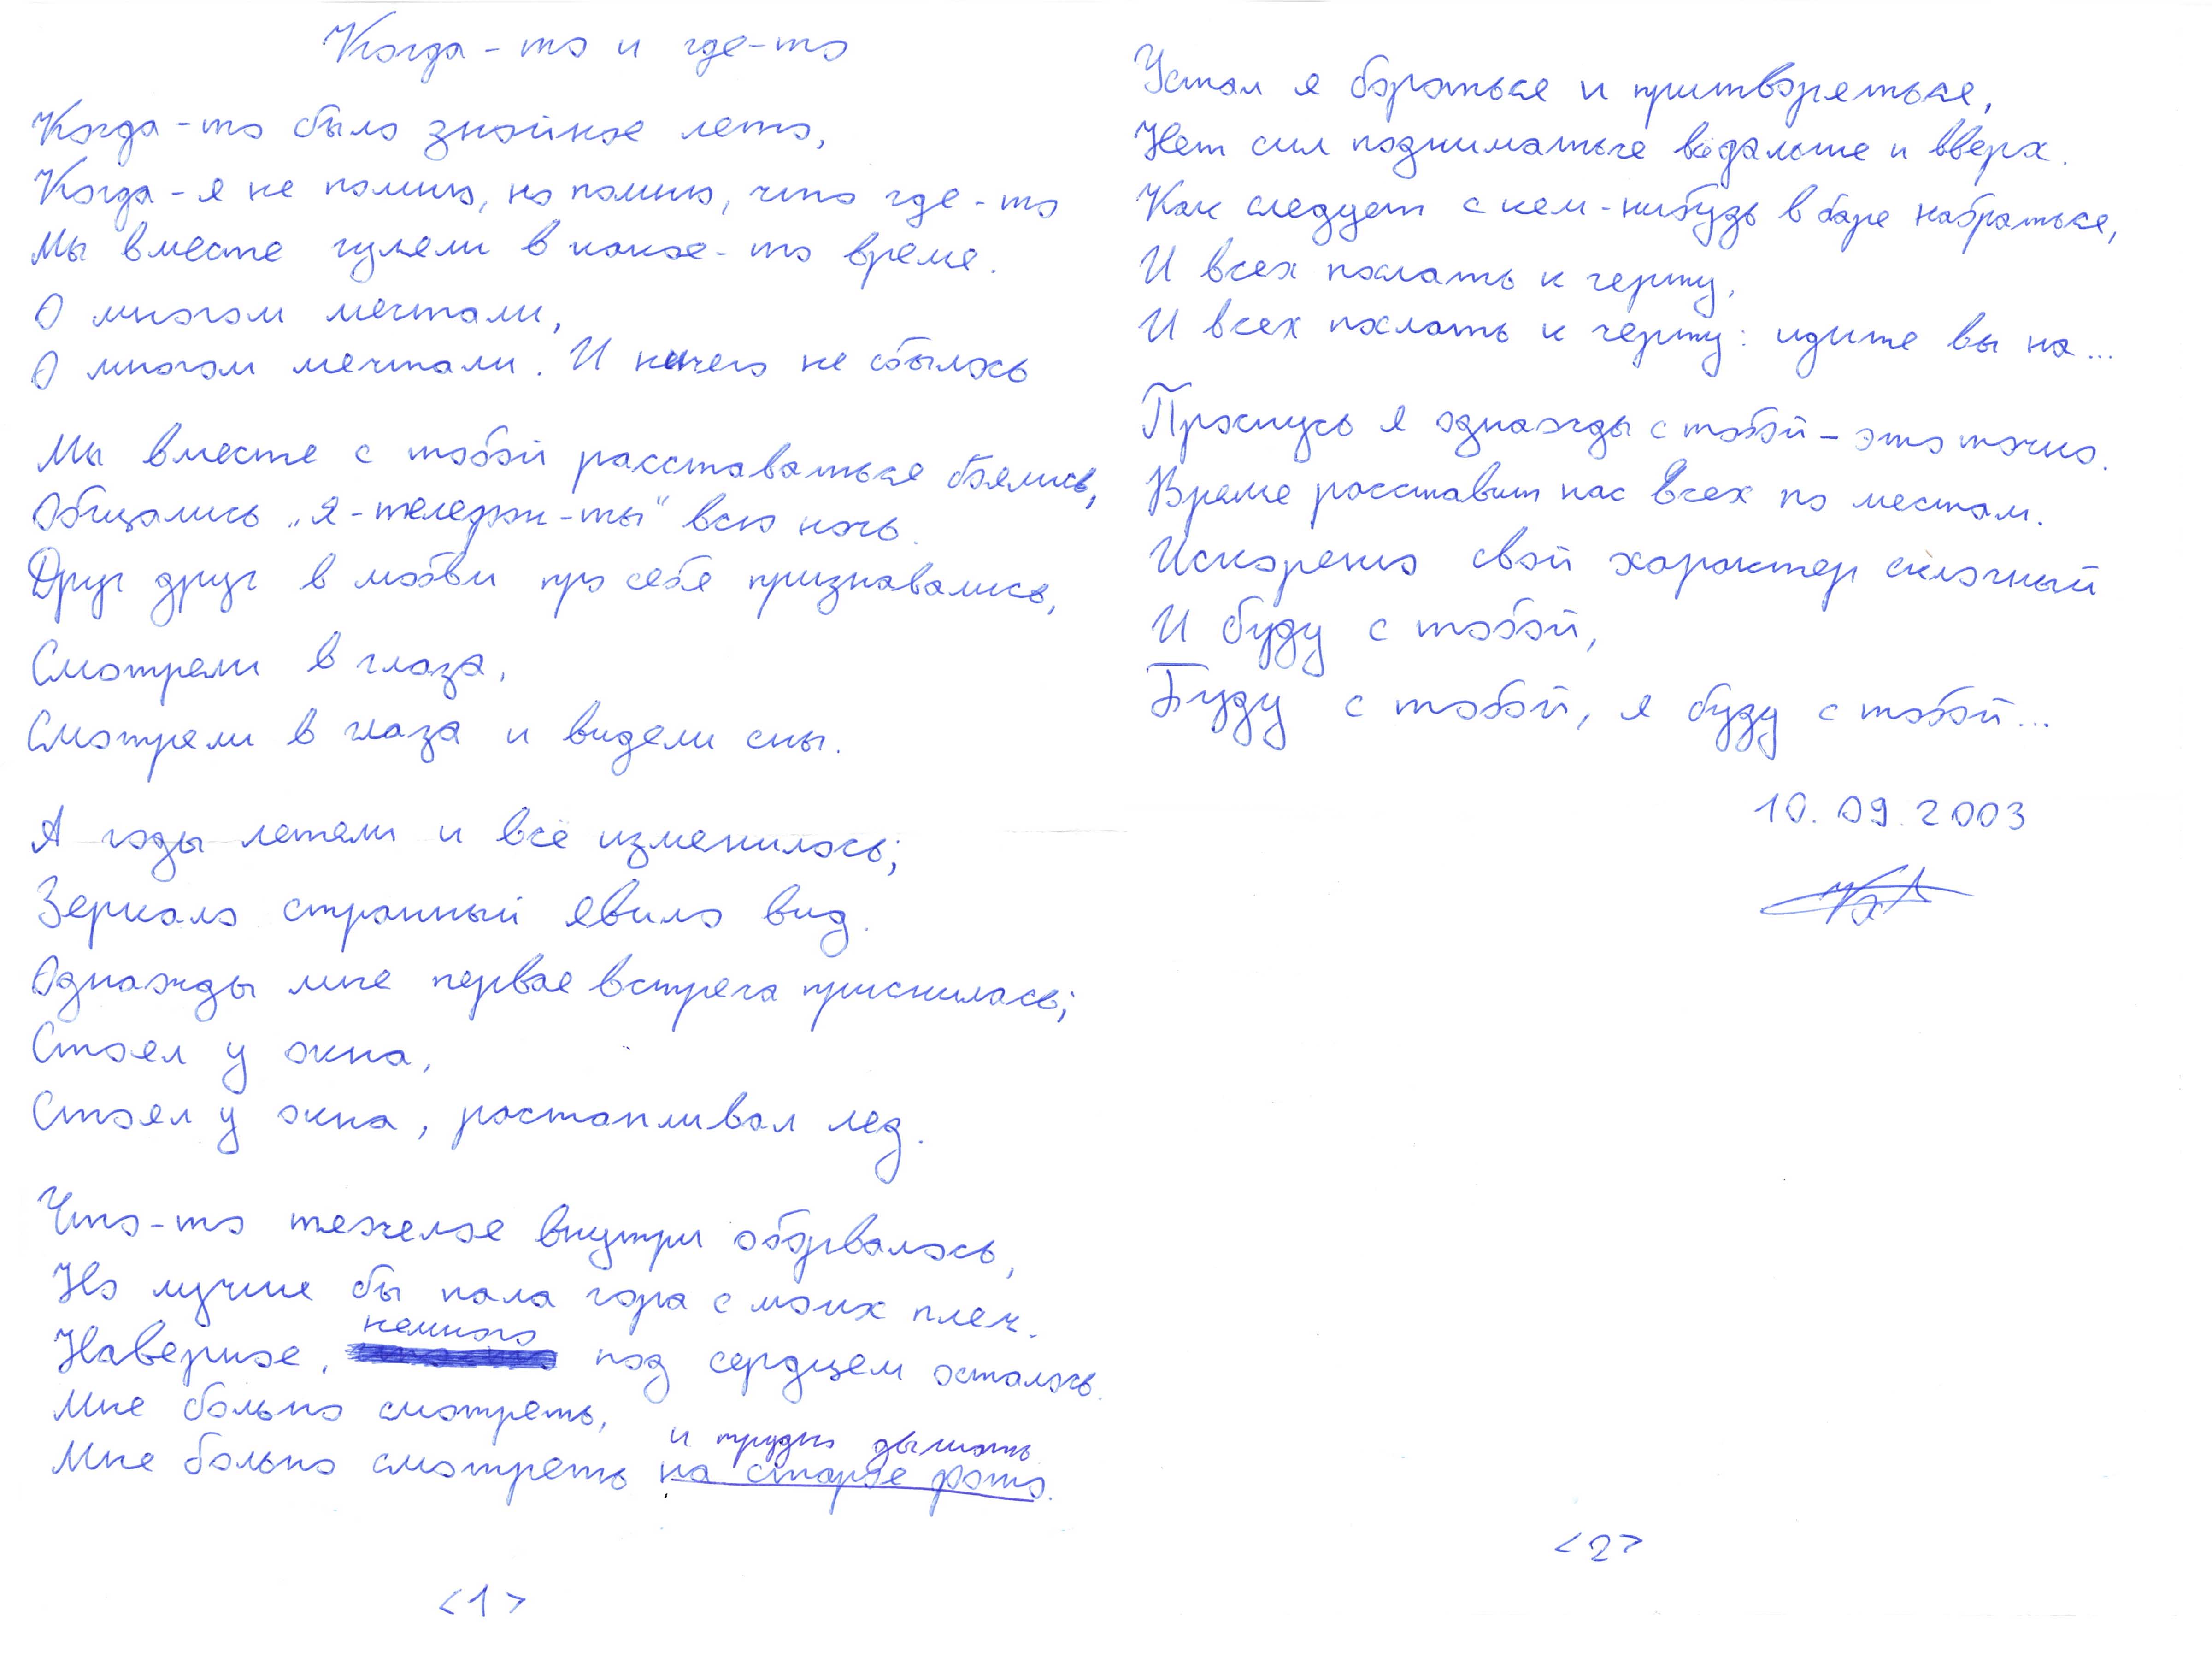 Когда-то и где-то
Когда-то было знойное лето,
Когда - я не помню, но помню, что где-то
Мы вместе гуляли в какое-то время.
О многом мечтали,
О многом мечтали. И ничего не сбылось
Мы вместе с тобой расставаться боялись,
Общались „я-телефон-ты" всю ночь.
Друг друг в любви про себя признавались,
Смотрели в глаза,
Смотрели в глаза и видели сны.
А годы летели и всё изменилось;
Зеркало странный явило вид.
Однажды мне первая встреча приснилась;
Стоял у окна,
Стоял у окна, растапливал лед.
Что-то тяжелое внутри оборвалось,
Но лучше бы пала гора с моих плеч.
немного
Наверное, под сердцем осталось.
Мне больно смотреть,
и трудно дышать
Мне больно смотреть на старое фото.
<1>
Устал я бороться и притворяться,
Нет сил подниматься дальше и вверх.
Как следует с кем-нибудь в баре набраться,
И всех послать к черту,
И всех послать к черту: идите вы на...
Проснусь я однажды с тобой - это точно.
Время расставит нас всех по местам.
Искореню свой характер склочный
И буду с тобой,
Буду с тобой, я буду с тобой...
10.09.2003
<2>